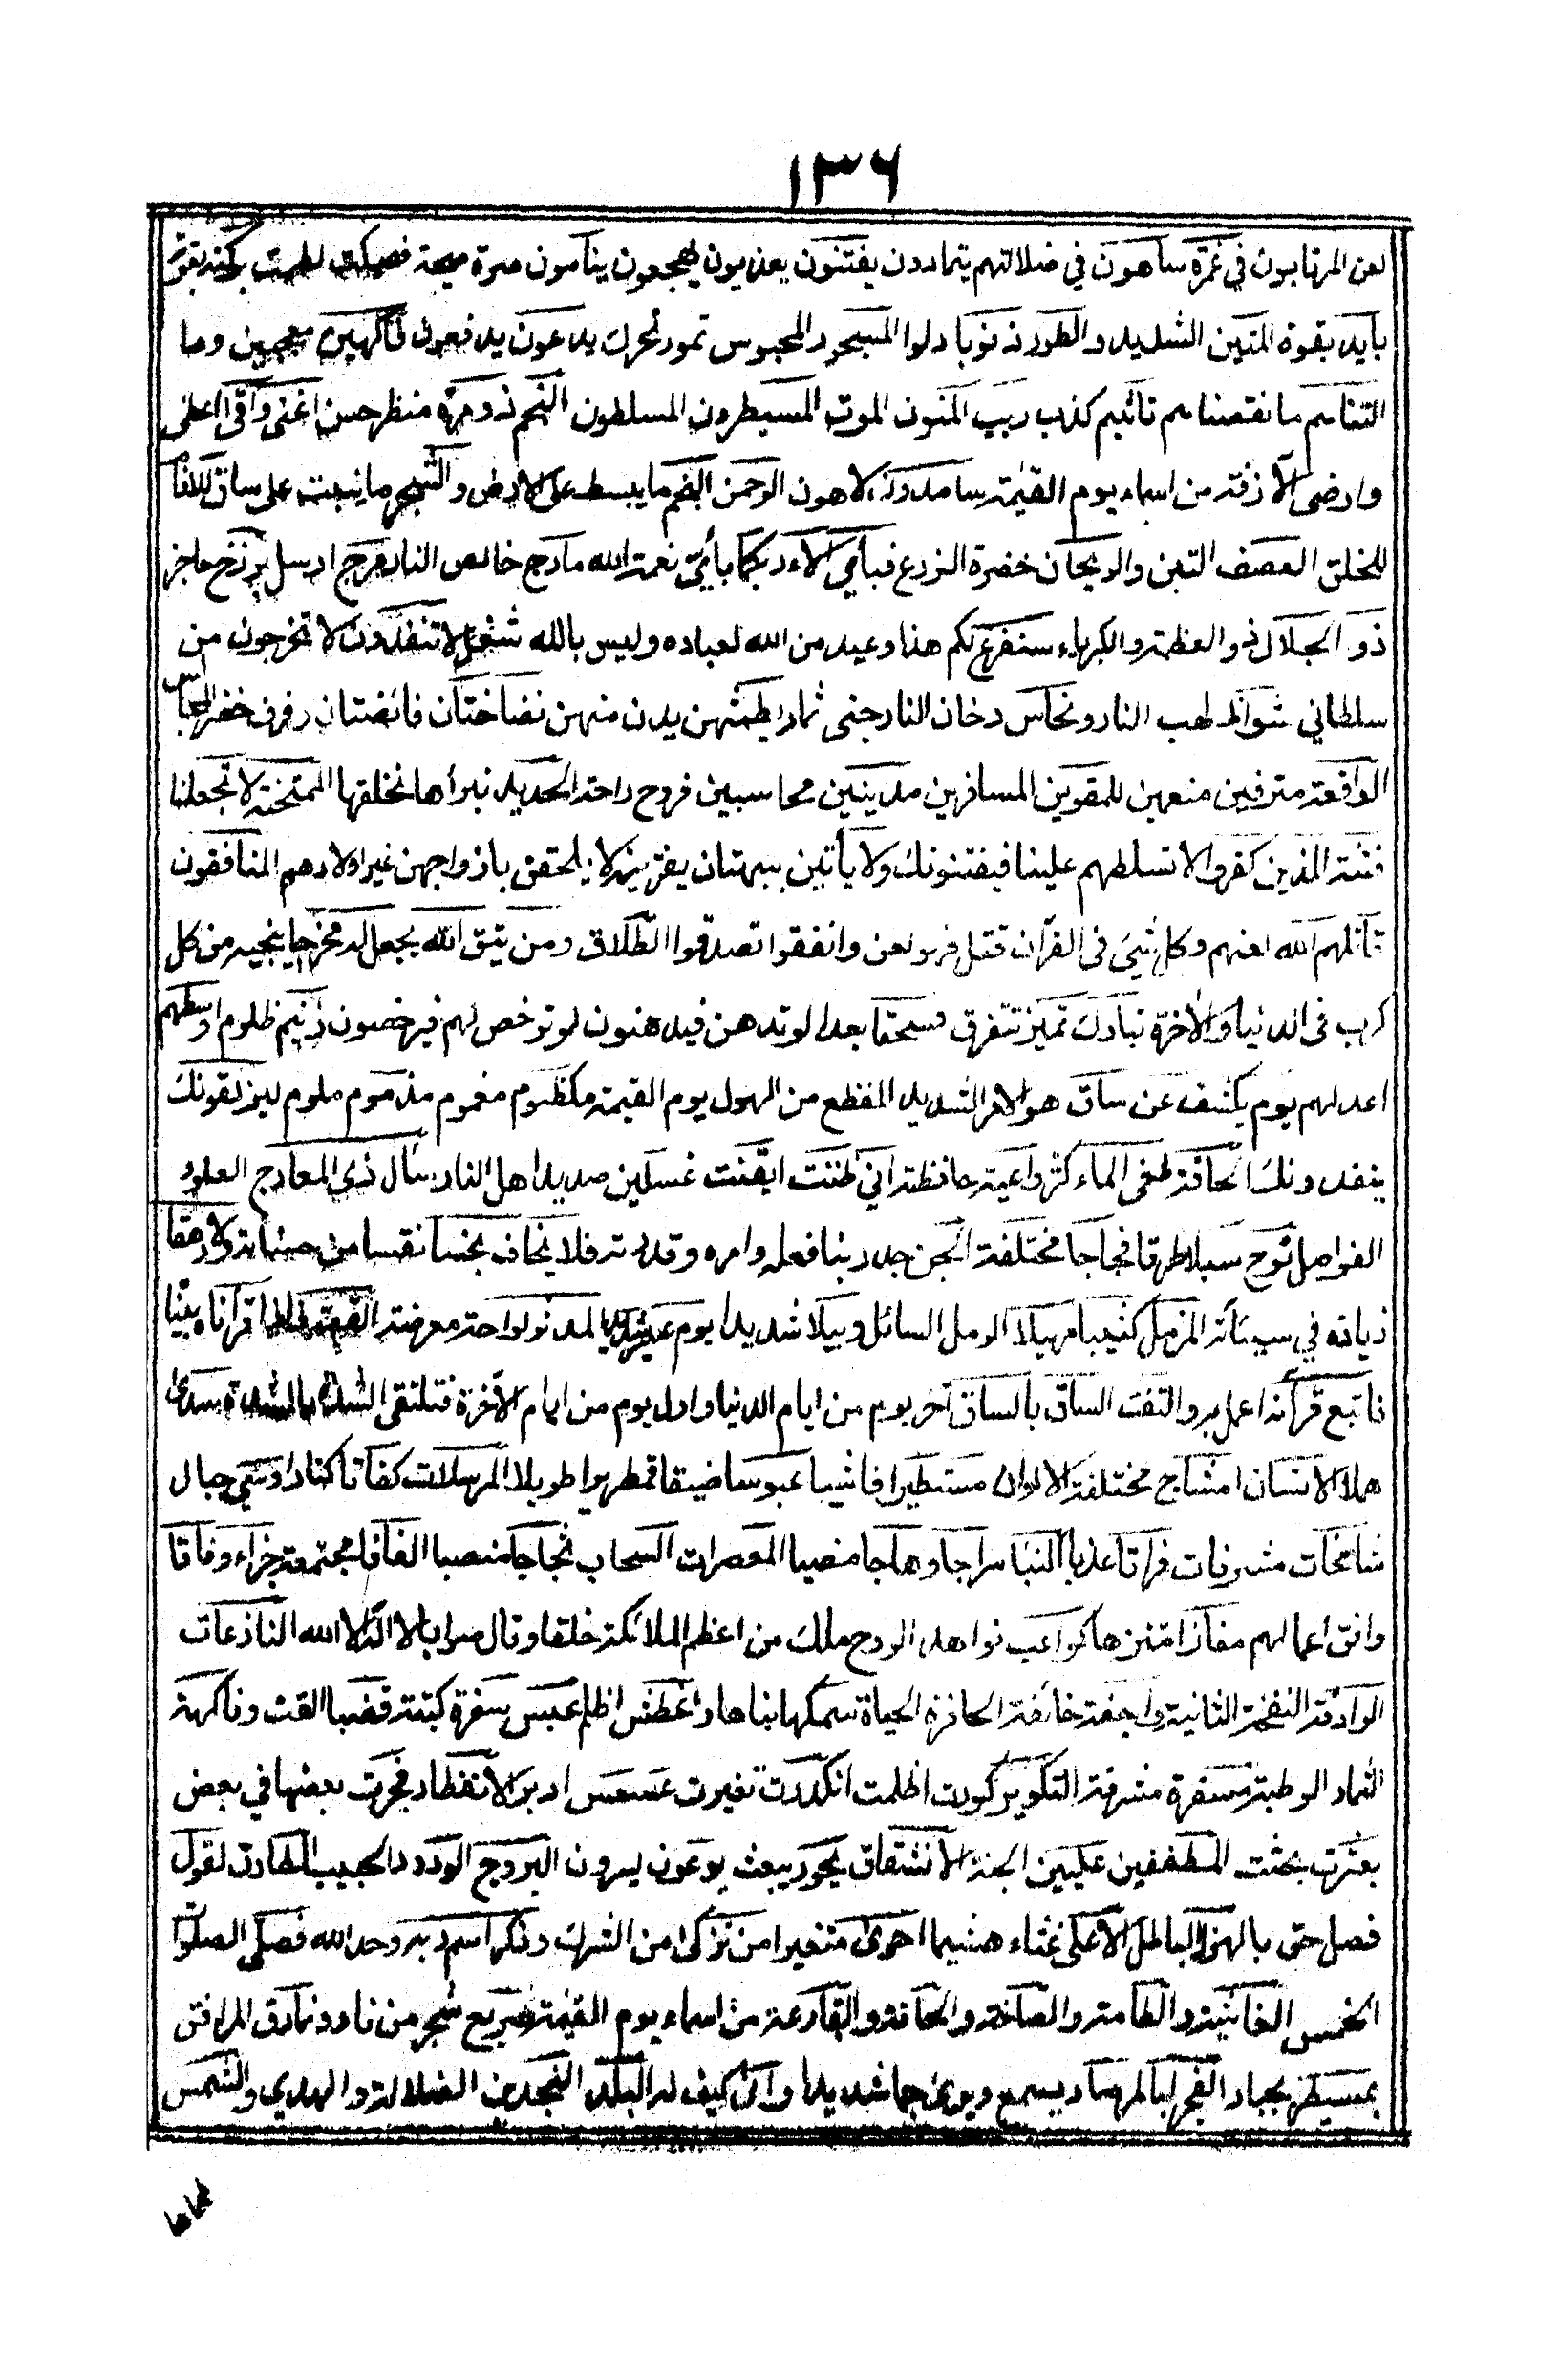 ١٣٦
لعن المرتابون في غمرة ساهون في ضلالتهم يتمادون يفتنون يعذبون يهجعون ينامون صرة صيحة فصكت لطمت بركنه بقوته
بأيد بقوة المتين الشديد والطور ذنوبا دلوا المسجور المحبوس تمور تحرك يدعون يدفعون فاكهين معجبين وما
التناهم ما نقصناهم تأثيم كذب ريب المنون الموت المسيطرون المسلطون النجم ذو مرة منظر حسن اغنى واقنى اعطى
وارضى الآزفة من اسماء يوم القيمة سامدون لاهون الرحمن النجم ما يبسط على الارض والشجر ما ينبت على ساق للانام
للخلق العصف التبن والريحان خضرة الزرع فبأي آلاء ربكما بأيّ نعمة الله مارج خالص النار مرج ارسل برزخ حاجز
ذو الجلال ذو العظمة والكبرياء سنفرغ لكم هذا وعيد من الله لعباده وليس بالله شغل لا تنفذون لا تخرجون من
سلطاني شواظ لهب النار ونحاس دخان النار جنى ثمار يطمثهن يدن منهن نضاختان فائضتان رفرف خضر المحابس
الواقعة مترفين منعمين للمقوين المسافرين مدينين محاسبين فروح راحة الحديد نبرأها نخلقها الممتحنة لا تجعلنا
فتنة للذين كفروا لا تسلطهم علينا فيفتنونك ولا يأتين ببهتان يفترينه لا يلحقن بازواجهن غير اولادهم المنافقون
قاتلهم الله لعنهم وكل شيئ في القرآن قتل فهو لعن وانفقوا تصدقوا الطلاق ومن يتق الله يجعل له مخرجا ينجيه من كل
كرب في الدنيا والآخرة تبارك تميز تتفرق فسحقا بعدا لو تدهن فيدهنون لو ترخص لهم فيرخصون زنيم ظلوم اوسطهم
اعدلهم يوم يكشف عن ساق هو الامر الشديد المفظع من الهول يوم القيمة مكظوم مغموم مذموم ملوم ليزلقونك
ينفذونك الحاقة طغى الماء كثر واعية حافظة اني ظننت ايقنت غسلين صديد اهل النار سأل ذي المعارج العلو و
الفواضل نوح سبلا طرقا فجاجا مختلفة الجن جد ربنا فعله وامره وقدرته فلا يخاف بخسا نقصا من حسناته ولا رهقا
زيادة في سيئآته المزمل كثيبا مهيلا الرمل السائل وبيلا شديدا يوم عسير شديد المدثر لواحة معرضة القيمة فاذا قرآناه بيّنا
فاتبع قرآنه اعمل به والتفت الساق بالساق آخر يوم من ايام الدنيا واول يوم من ايام الآخرة فتلتقي الشدة بالشدة سدى
هملا الانسان امشاج مختلفة الالوان مستطيرا فاشيا عبوسا ضيقا قمطريرا طويلا المرسلات كفاتا كنا رواسي جبال
شامخات مشرفات فراتا عذبا النبا سراجا وهاجا مضيئا المعصرات السحاب ثجاجا منصبا الفافا مجتمعة جزاء وفاقا
وافق اعمالهم مفازا متنزها كواعب نواهد الروح ملك من اعظم الملائكة خلقا وقال صوابا لا اله الا الله النازعات
الرادفة النفخة الثانية واجفة خائفة الحافرة الحياة سمكها بناها واغطش اظلم عبس سفرة كتبة قضبا القت وفاكهة
الثمار الرطبة مسفرة مشرقة التكوير كورت اظلمت انكدرت تغيرت عسعس ادبر الانفطار فجرت بعضها في بعض
بعثرت بحثت المطففين عليين الجنة الانشقاق يحور يبعث يوعون يسرون البروج الودود الحبيب الطارق لقول
فصل حق بالهزل بالباطل الاعلى غثاء هشيما احوى متغيرا من تزكى من الشرك وذكر اسم ربه وحد الله فصلى الصلوات
الخمس الغاشية والطامة والصاخة والحاقة والقارعة من اسماء يوم القيمة ضريع شجر من نار ونمارق المرافق
بمسيطر بجبار الفجر لبالمرصاد يسمع ويرى جما شديدا وانى كيف له البلد النجدين الضلالة والهدى والشمس